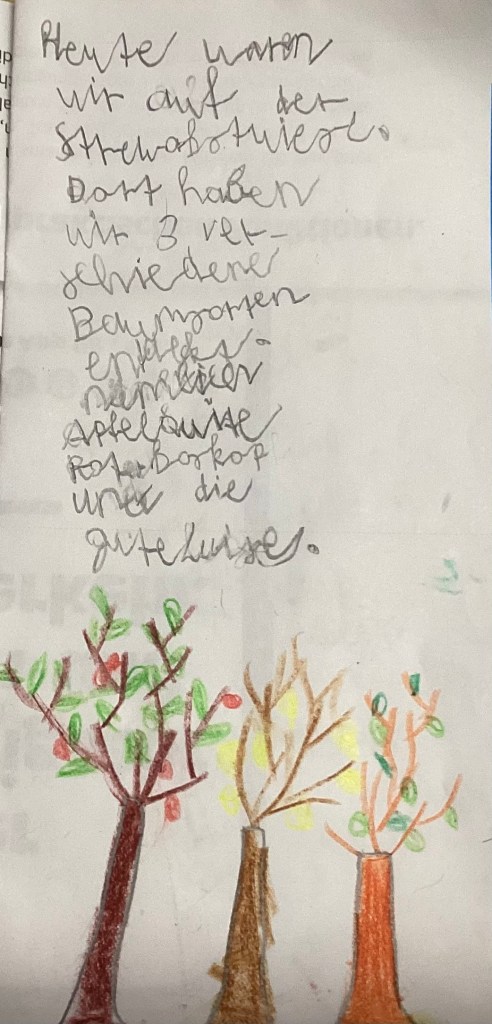 Heute waren
wir auf der
Strewobstwiese.
Dort haben
wir 3 ver-
schiedene
Baumsorten
entdekt.
nämlich
Apfelquitte
Roter Boskop
und die
gute Luise.